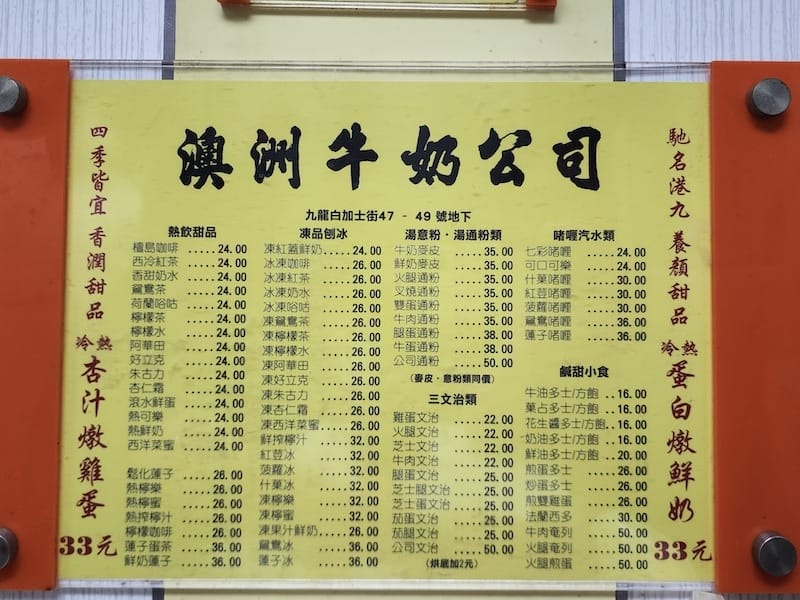 澳洲牛奶公司
九龍白加士街47 - 49 號地下
四季皆宜 香潤甜品
冷熱
杏汁燉雞蛋
33元
熱飲甜品
檀島咖啡.....24.00
西冷紅茶.....24.00
香甜奶水.....24.00
鴛鴦茶.....24.00
荷蘭哈咕.....24.00
檸檬茶.....24.00
檸檬水.....24.00
阿華田.....24.00
好立克.....24.00
朱古力.....24.00
杏仁霜.....24.00
滾水鮮蛋.....24.00
熱可樂.....24.00
熱鮮奶.....24.00
西洋菜蜜.....24.00
鬆化蓮子.....26.00
熱檸樂.....26.00
熱檸蜜.....26.00
熱搾檸汁.....26.00
檸檬咖啡.....26.00
蓮子蛋茶.....36.00
鮮奶蓮子.....36.00
凍品刨冰
凍紅蓋鮮奶.....24.00
冰凍咖啡.....26.00
冰凍紅茶.....26.00
冰凍奶水.....26.00
冰凍哈咕.....26.00
凍鴛鴦茶.....26.00
凍檸檬茶.....26.00
凍檸檬水.....26.00
凍阿華田.....26.00
凍好立克.....26.00
凍朱古力.....26.00
凍杏仁霜.....26.00
凍西洋菜蜜.....26.00
鮮搾檸汁.....32.00
紅荳冰.....32.00
菠蘿冰.....32.00
什菓冰.....32.00
凍檸樂.....32.00
凍檸蜜.....32.00
凍果汁鮮奶.....26.00
鴛鴦冰.....36.00
蓮子冰.....36.00
湯意粉·湯通粉類
牛奶麥皮.....35.00
鮮奶麥皮.....35.00
火腿通粉.....35.00
叉燒通粉.....35.00
雙蛋通粉.....35.00
牛肉通粉.....35.00
腿蛋通粉.....38.00
牛蛋通粉.....38.00
公司通粉.....50.00
(麥皮·意粉類同價)
三文治類
雞蛋文治.....22.00
火腿文治.....22.00
芝士文治.....22.00
牛肉文治.....22.00
腿蛋文治.....25.00
芝士腿文治.....25.00
芝士蛋文治.....25.00
茄蛋文治.....25.00
茄蛋文治.....25.00
公司文治.....50.00
(烘底加2元)
啫喱汽水類
七彩啫喱.....24.00
可口可樂.....24.00
什菓啫喱.....30.00
紅荳啫喱.....30.00
菠蘿啫喱.....30.00
鴛鴦啫喱.....36.00
蓮子啫喱.....36.00
鹹甜小食
牛油多士/方飽..16.00
菓占多士/方飽..16.00
花生醬多士/方飽..16.00
奶油多士/方飽..16.00
鮮油多士/方飽..20.00
煎蛋多士.....26.00
炒蛋多士.....26.00
煎雙雞蛋.....26.00
法蘭西多.....30.00
牛肉奄列.....50.00
火腿奄列.....50.00
火腿煎蛋.....50.00
馳名港九 養顏甜品
冷熱
蛋白燉鮮奶
33元